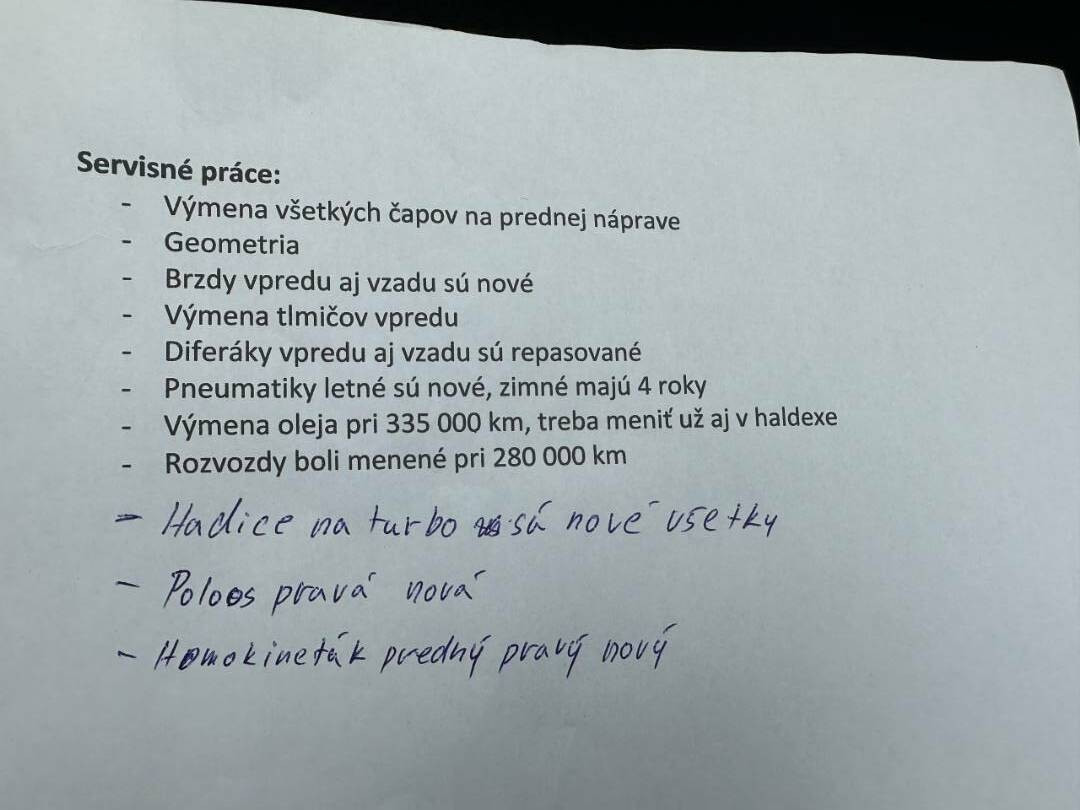 Servisné práce:
- Výmena všetkých čapov na prednej náprave
- Geometria
- Brzdy vpredu aj vzadu sú nové
- Výmena tlmičov vpredu
- Diferáky vpredu aj vzadu sú repasované
- Pneumatiky letné sú nové, zimné majú 4 roky
- Výmena oleja pri 335 000 km, treba meniť už aj v haldexe
- Rozvozdy boli menené pri 280 000 km
- Hadice na turbo sú nové všetky
- Poloos pravá nová
- Homokineták predný pravý nový